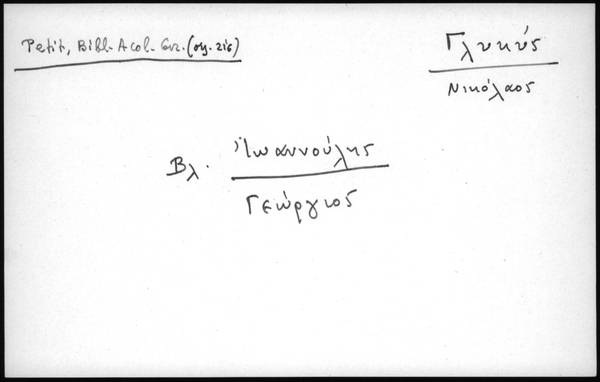 Petit, Bibl. Acol. Gr. (σχ. 216)
Γλυκύς
Νικόλαος
Βλ. Ἰωαννούλης
Γεώργιος